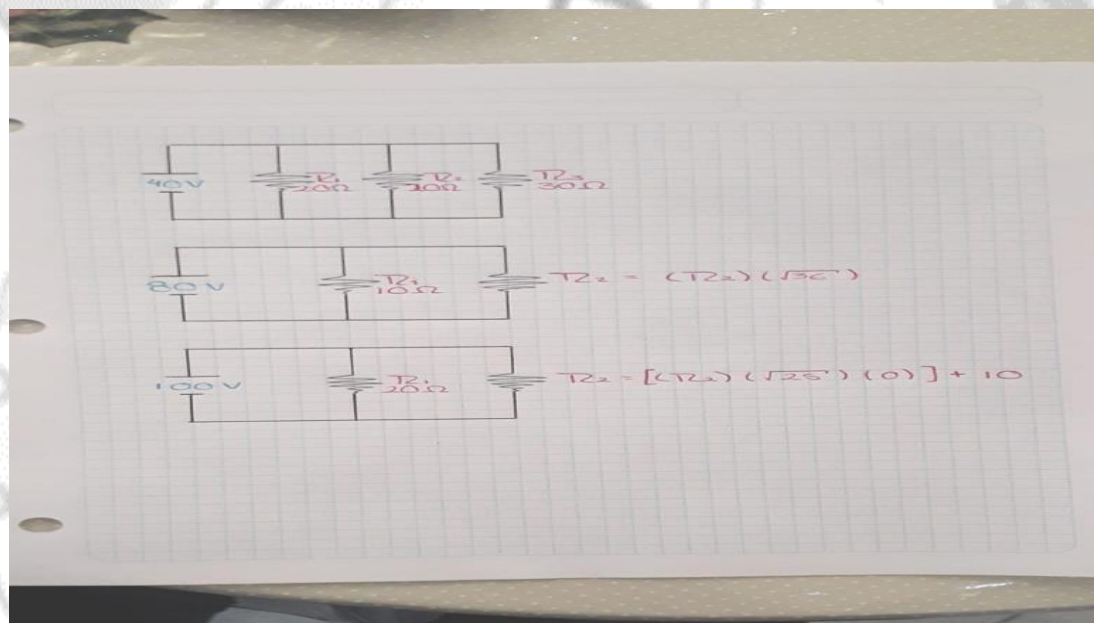 40V R₁ 20Ω R₂ 20Ω R₃ 30Ω
80V R₁ 10Ω R₂ = (R₂)(√36)
100V R₁ 20Ω R₂ = [(R₂)(√25)(0)] + 10